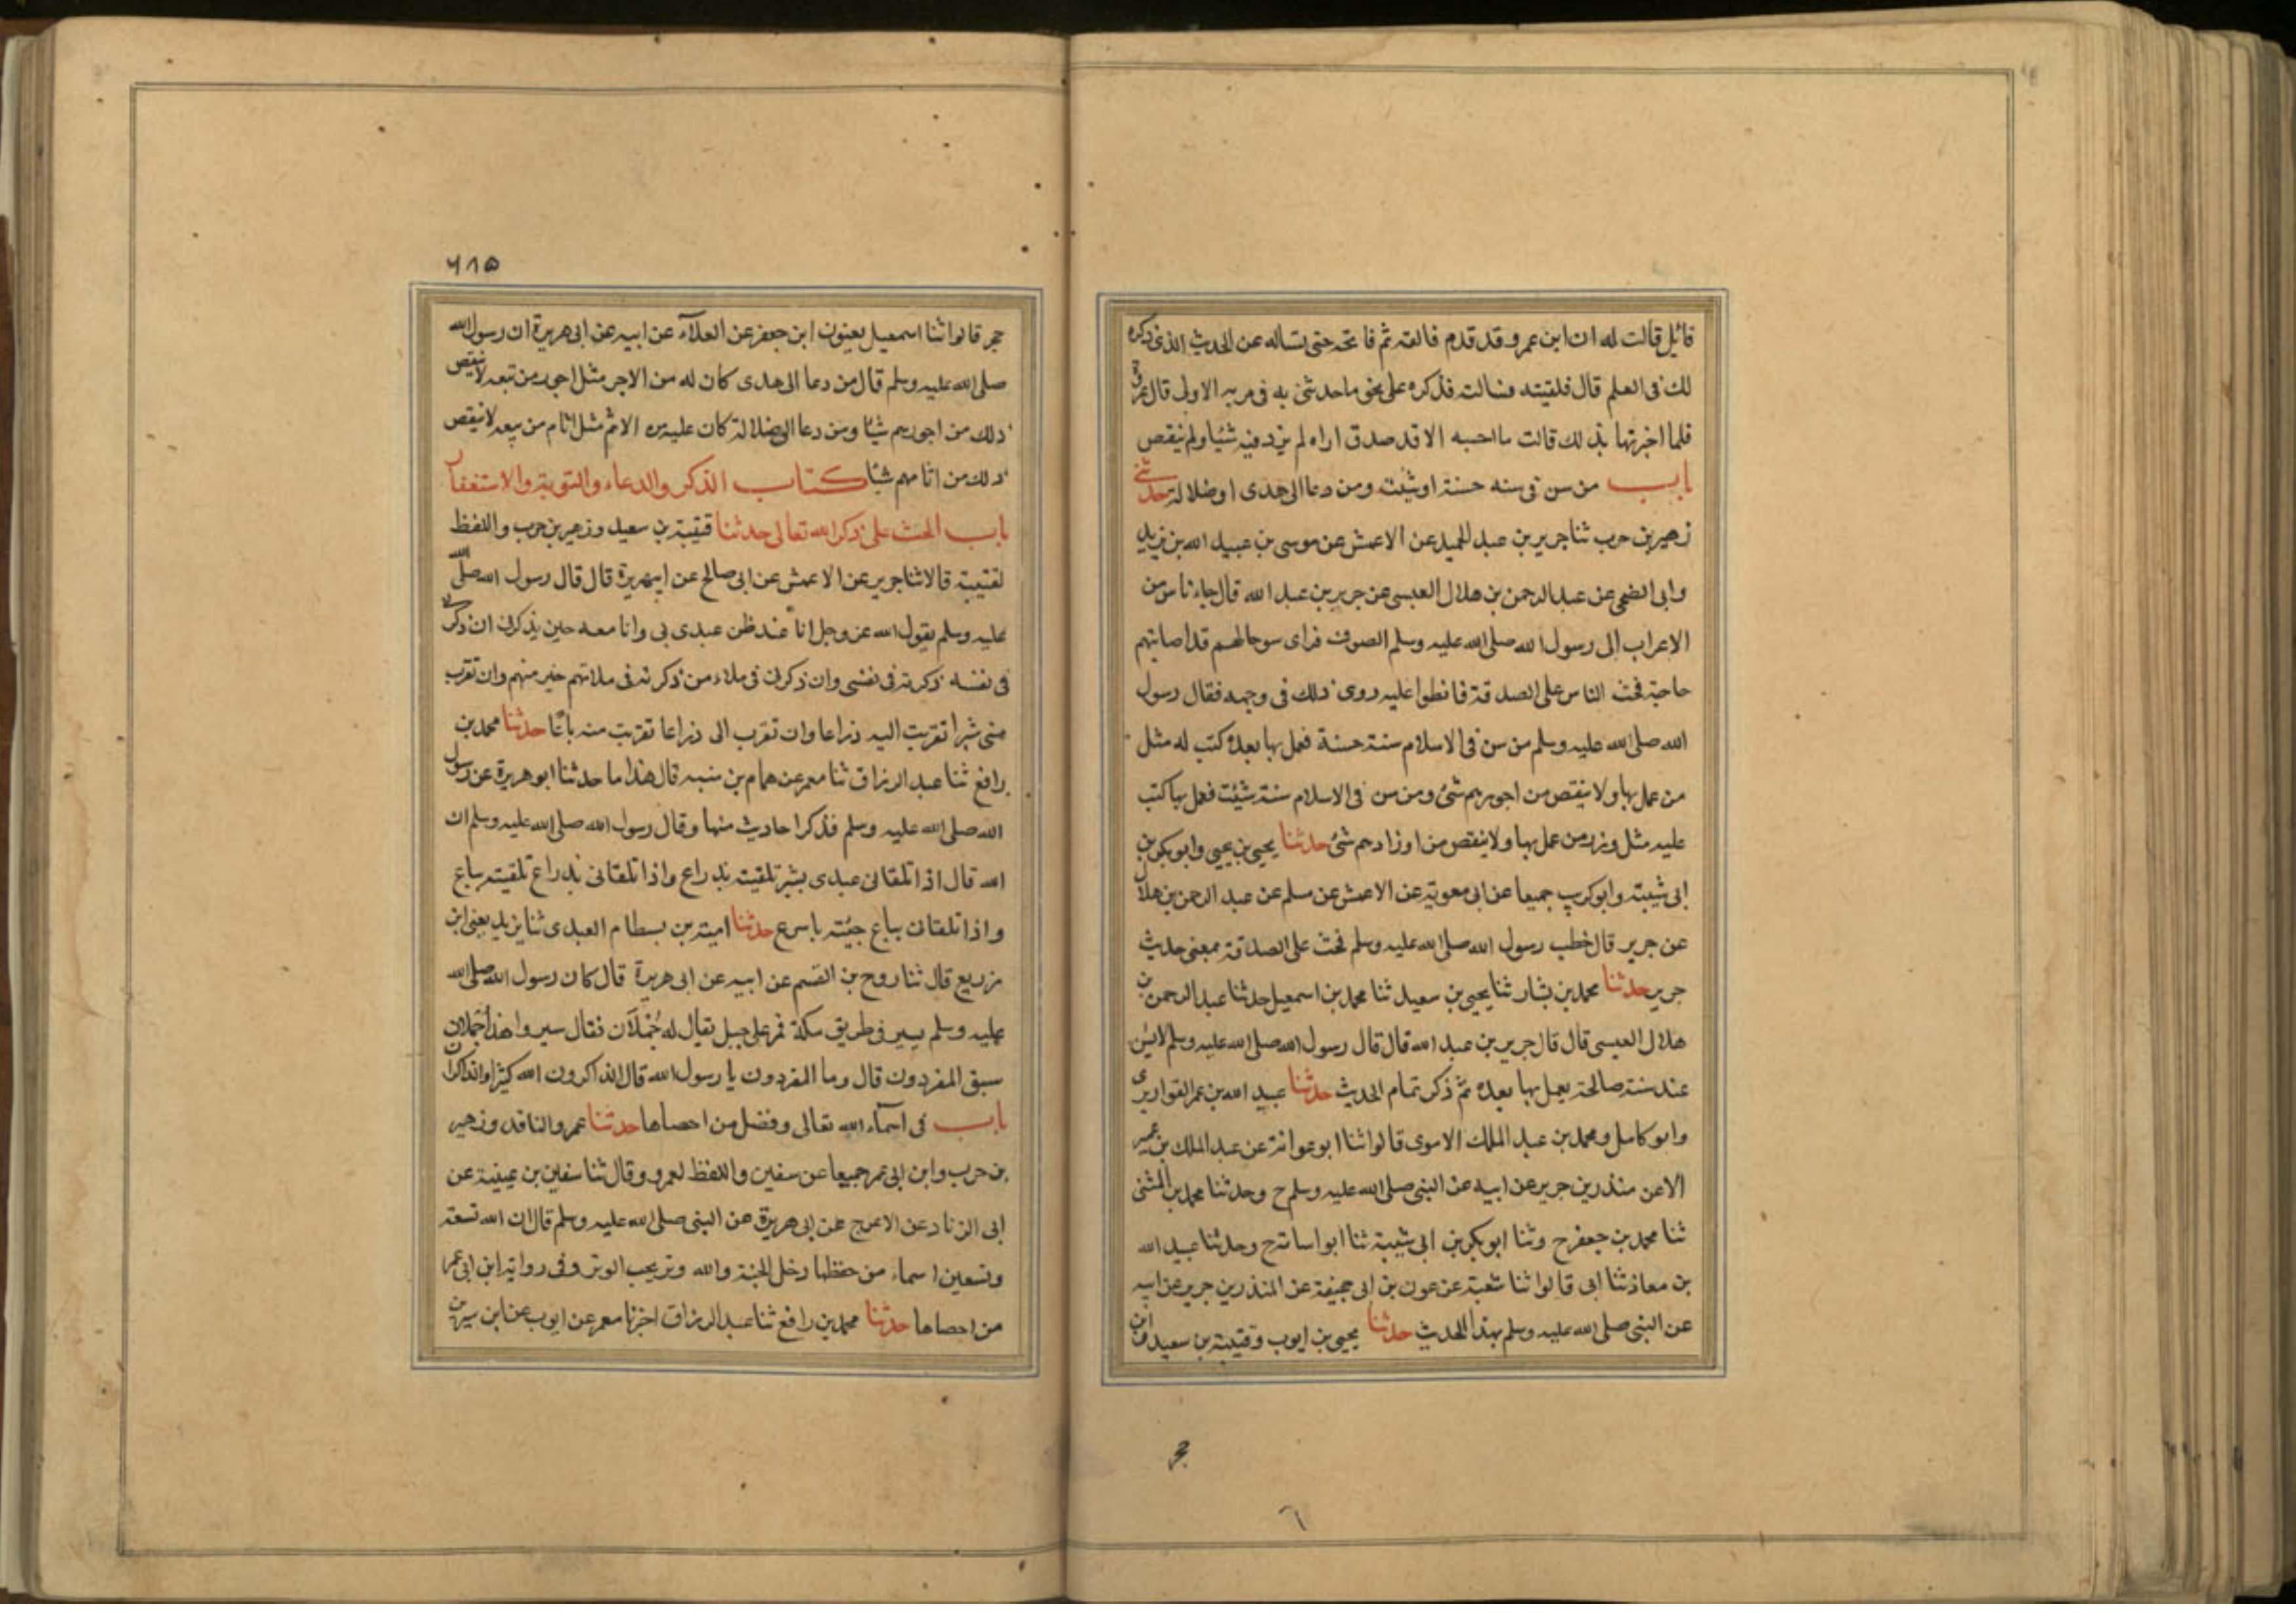 قابل قالت له ان ابن عمرو قد قدم فالقه ثم فاتحه حتى تساله عن الحديث الذى ذكره
لك فى العلم قال فلقيته فسالته فذكره على نحو ما حدثنى به فى مرته الاولى قال عروة
فلما اخبرتها بذلك قالت ما احسبه الا قد صدق اراه لم يزد فيه شيئا ولم ينقص
باب من سن فى سنه حسنة او سيئت ومن دعا الى هدى او ضلالة حدثنى
زهير بن حرب ثنا جرير بن عبد الحميد عن الاعمش عن موسى بن عبيد الله بن يزيد
وابى الضحى عن عبد الرحمن بن هلال العبسى عن جرير بن عبد الله قال جاء ناس من
الاعراب الى رسول الله صلى الله عليه وسلم الصوف فراى سوحالهم قد اصابتهم
حاجة فحث الناس على الصدقة فانطوا عليه روى ذلك فى وجهه فقال رسول
الله صلى الله عليه وسلم من سن فى الاسلام سنة حسنة فعمل بها بعده كتب له مثل
من عمل بها ولا ينقص من اجورهم شئ ومن سن فى الاسلام سنة سيئت فعمل بها كتب
عليه مثل وزر من عمل بها ولا ينقص من اوزارهم شئ حدثنا يحيى بن يحيى وابو بكر بن
ابى شيبة وابو كريب جميعا عن ابى معوية عن الاعمش عن مسلم عن عبد الرحمن بن هلال
عن جرير قال خطب رسول الله صلى الله عليه وسلم فحث على الصدقة بمعنى حديث
جرير حدثنا محمد بن بشار ثنا يحيى بن سعيد ثنا محمد بن اسمعيل حدثنا عبد الرحمن بن
هلال العبسى قال قال جرير بن عبد الله قال قال رسول الله صلى الله عليه وسلم لا يسن
عند سنة صالحة يعمل بها بعده ثم ذكر تمام الحديث حدثنا عبيد الله بن عمر القواريرى
وابو كامل ومحمد بن عبد الملك الاموى قالوا ثنا ابو عوانة عن عبد الملك بن عمير
الا عن منذر بن جرير عن ابيه عن النبى صلى الله عليه وسلم ح وحدثنا محمد بن المثنى
ثنا محمد بن جعفر ح وثنا ابو بكر بن ابى شيبة ثنا ابو اسامة ح وحدثنا عبيد الله
بن معاذ ثنا ابى قالوا ثنا شعبة عن عون بن ابى جحيفة عن المنذر بن جرير عن ابيه
عن النبى صلى الله عليه وسلم بهذا الحديث حدثنا يحيى بن ايوب وقتيبة بن سعيد وابن
٦
٦١٥
حجر قالوا ثنا اسمعيل يعنون ابن جعفر عن العلآء عن ابيه عن ابى هريرة ان رسول الله
صلى الله عليه وسلم قال من دعا الى هدى كان له من الاجر مثل اجور من تبعه لا ينقص
ذلك من اجورهم شيئا ومن دعا الى ضلالة كان عليه من الاثم مثل اثام من تبعه لا ينقص
ذلك من اثامهم شيئا كتاب الذكر والدعاء والتوبة والاستغفار
باب الحث على ذكر الله تعالى حدثنا قتيبة بن سعيد وزهير بن حرب واللفظ
لقتيبة قالا ثنا جرير عن الاعمش عن ابى صالح عن ابى هريرة قال قال رسول الله صلى الله
عليه وسلم يقول الله عز وجل انا عند ظن عبدى بى وانا معه حين يذكرنى ان ذكرنى
فى نفسه ذكرته فى نفسى وان ذكرنى فى ملاء من ذكرته فى ملاءهم خير منهم وان تقرب
منى شبرا تقربت اليه ذراعا وان تقرب الى ذراعا تقربت منه باعا حدثنا محمد بن
رافع ثنا عبد الرزاق ثنا معمر عن همام بن منبه قال هذا ما حدثنا ابو هريرة عن رسول
الله صلى الله عليه وسلم فذكر احاديث منها وقال رسول الله صلى الله عليه وسلم ان
الله قال اذا تلقانى عبدى بشبر تلقيته بذراع واذا تلقانى بذراع تلقيته بباع
واذا تلقانى بباع جيئته باسرع حدثنا امية بن بسطام العبدى ثنا يزيد يعنى ابن
زريع قال ثنا روح بن القسم عن ابيه عن ابى هريرة قال كان رسول الله صلى الله
عليه وسلم يسير فى طريق مكة فمر على جبل يقال له جُمْدَان فقال سيروا هذا جمدان
سبق المفردون قال وما المفردون يا رسول الله قال الذاكرون الله كثيرا والذاكرات
باب فى اسمآء الله تعالى وفضل من احصاها حدثنا عمرو الناقد وزهير
بن حرب وابن ابى عمر جميعا عن سفين واللفظ لعمرو وقال ثنا سفين بن عيينة عن
ابى الزناد عن الاعرج عن ابى هريرة عن النبى صلى الله عليه وسلم قال ان الله تسعة
وتسعين اسماء من حفظها دخل الجنة والله وتر يحب الوتر وفى رواية ابن ابى عمر
من احصاها حدثنا محمد بن رافع ثنا عبد الرزاق اخبرنا معمر عن ايوب عن ابن سيرين